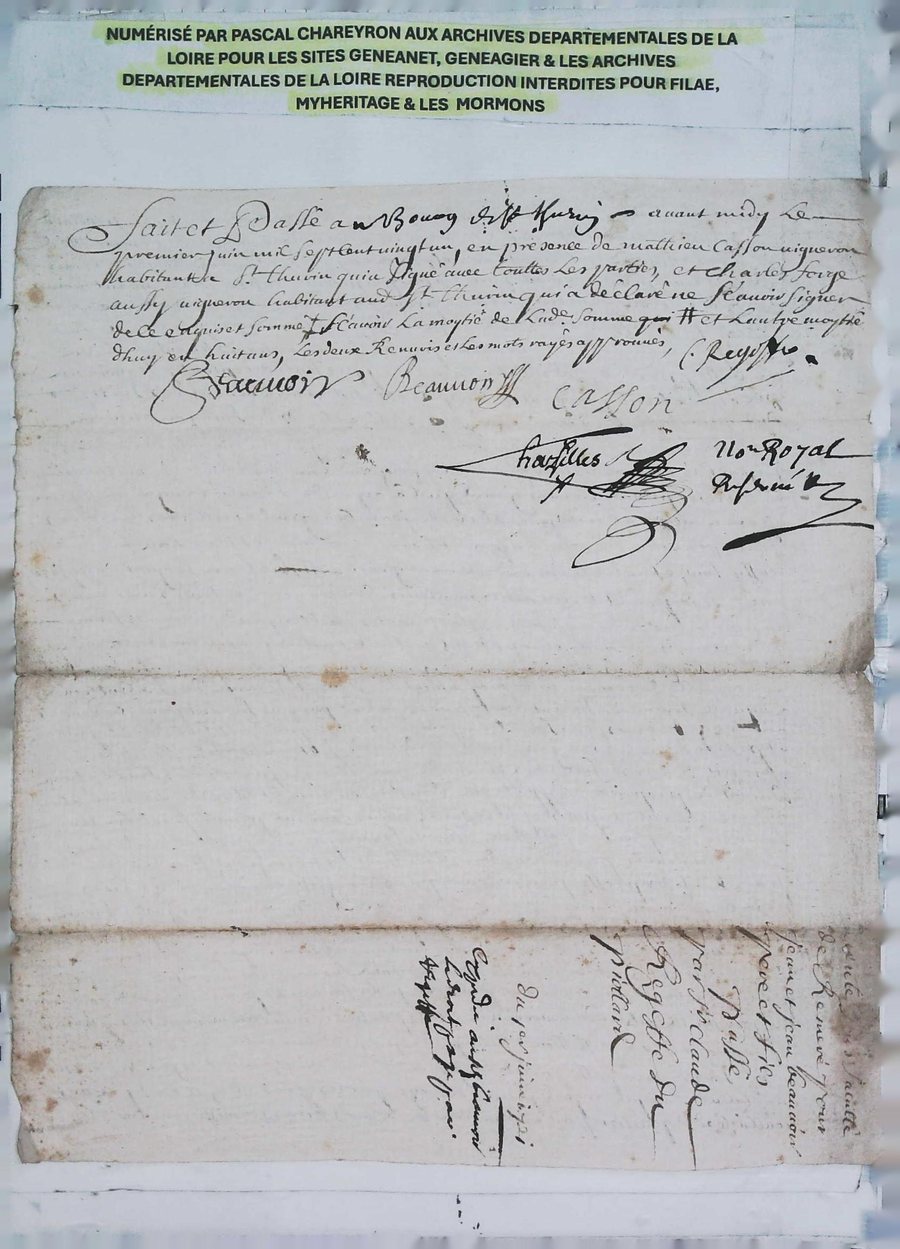 NUMÉRISÉ PAR PASCAL CHAREYRON AUX ARCHIVES DEPARTEMENTALES DE LA
LOIRE POUR LES SITES GENEANET, GENEAGIER & LES ARCHIVES
DEPARTEMENTALES DE LA LOIRE REPRODUCTION INTERDITES POUR FILAE,
MYHERITAGE & LES MORMONS
Fait et Passé au Bourg de St Thurin avant midy Le
premier juin mil sept cent vingt un, en presence de mathieu Casson vigneron
habitant a St. thurin qui a signé avec touttes Les parties, et Charles forge
aussy vigneron habitant aud St thurin qui a déclaré ne sçavoir signer
de ce enquis et sommé sçavoir La moytié de Lade somme qui # et Lautre moytié
dhuy en huit ans, Les deux Renvois et Les mots rayés approuvés, C. Regeffe
Beauvoir Beauvoir Casson
Chazelles Nore Royal
Reservé
vente faculté
de Remeré pour
jean et jean beauvoir
pere et fils
Passé
par sr claude
Regeffe Du
piolard
du 1er juin 1721